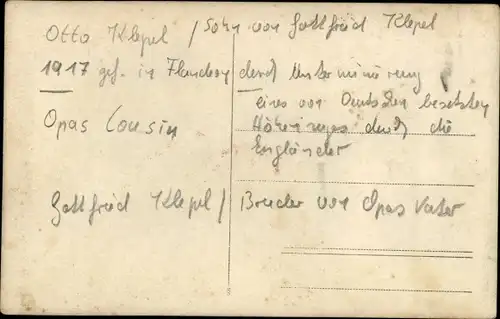 Otto Klepel / Sohn von Gottfried Klepel
1917 gef. in Flandern durch Unterminierung
eines von Deutschen besetzten
Opas Cousin
Höhenzuges durch die
Engländer
Gottfried Klepel / Bruder von Opas Vater